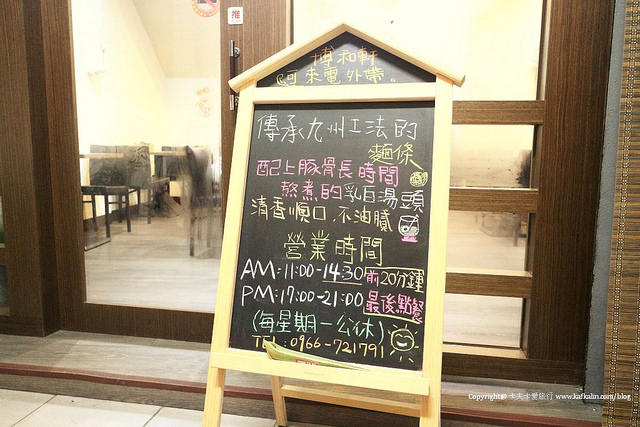 推
博和軒
可來電外帶
傳承九州工法的
麵條
配上豚骨長時間
熬煮的乳白湯頭
清香順口,不油膩
營業時間
AM:11:00-14:30 前20分鐘
PM:17:00-21:00 最後點餐
(每星期一公休)
TEL:0966-721791
Copyright@卡夫卡愛旅行 www.kafkalin.com/blog